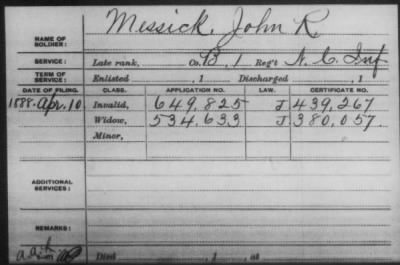 NAME OF SOLDIER: Messick, John R.
SERVICE: Late rank, Co. B, 1 Reg't N.C. Inf
TERM OF SERVICE: Enlisted , 1 Discharged , 1
DATE OF FILING. CLASS. APPLICATION NO. LAW. CERTIFICATE NO.
1888. Apr. 10 Invalid, 649,825 J 439,267
Widow, 534,633 J. 380,057.
Minor,
ADDITIONAL SERVICES:
REMARKS:
Died , 1 , at